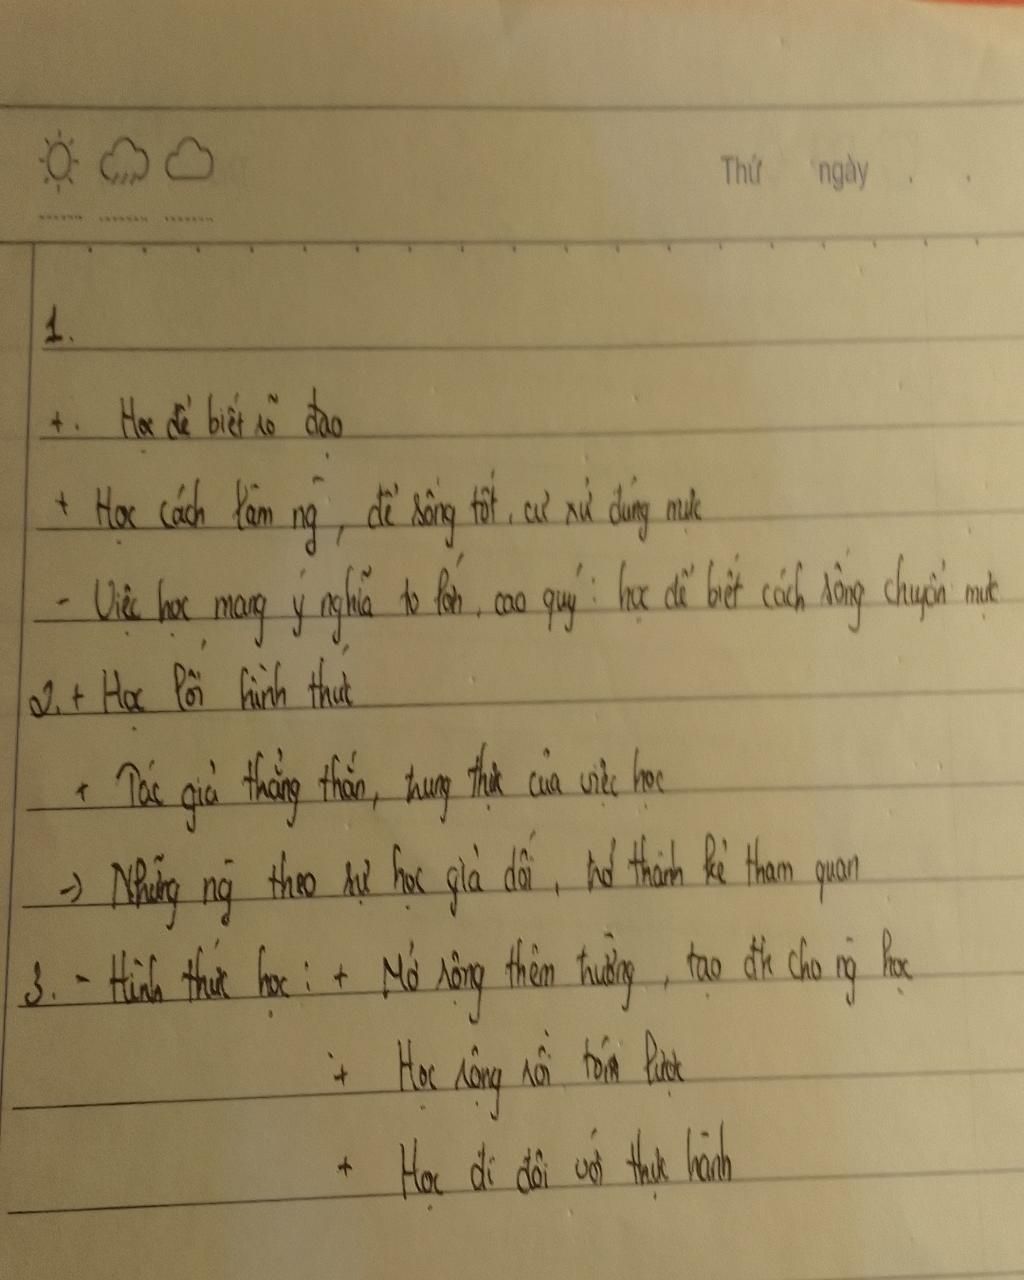 Thứ ngày
1.
+. Học để biết rõ đạo
+ Học cách làm ng̃, để sống tốt, cư xử đúng mực
- Việc học mang ý nghĩa to lớn, cao quý: học để biết cách sống chuyển mực
2. + Học lối hình thức
+ Tác giả thẳng thắn, trung thực của việc học
-> Những ng̃ theo sự học giả dối, trở thành kẻ tham quan
3. - Hình thức học: + Mở rộng thêm trường, tạo đk cho ng̃ học
+ Học rộng rồi tóm lược
+ Học đi đôi với thực hành